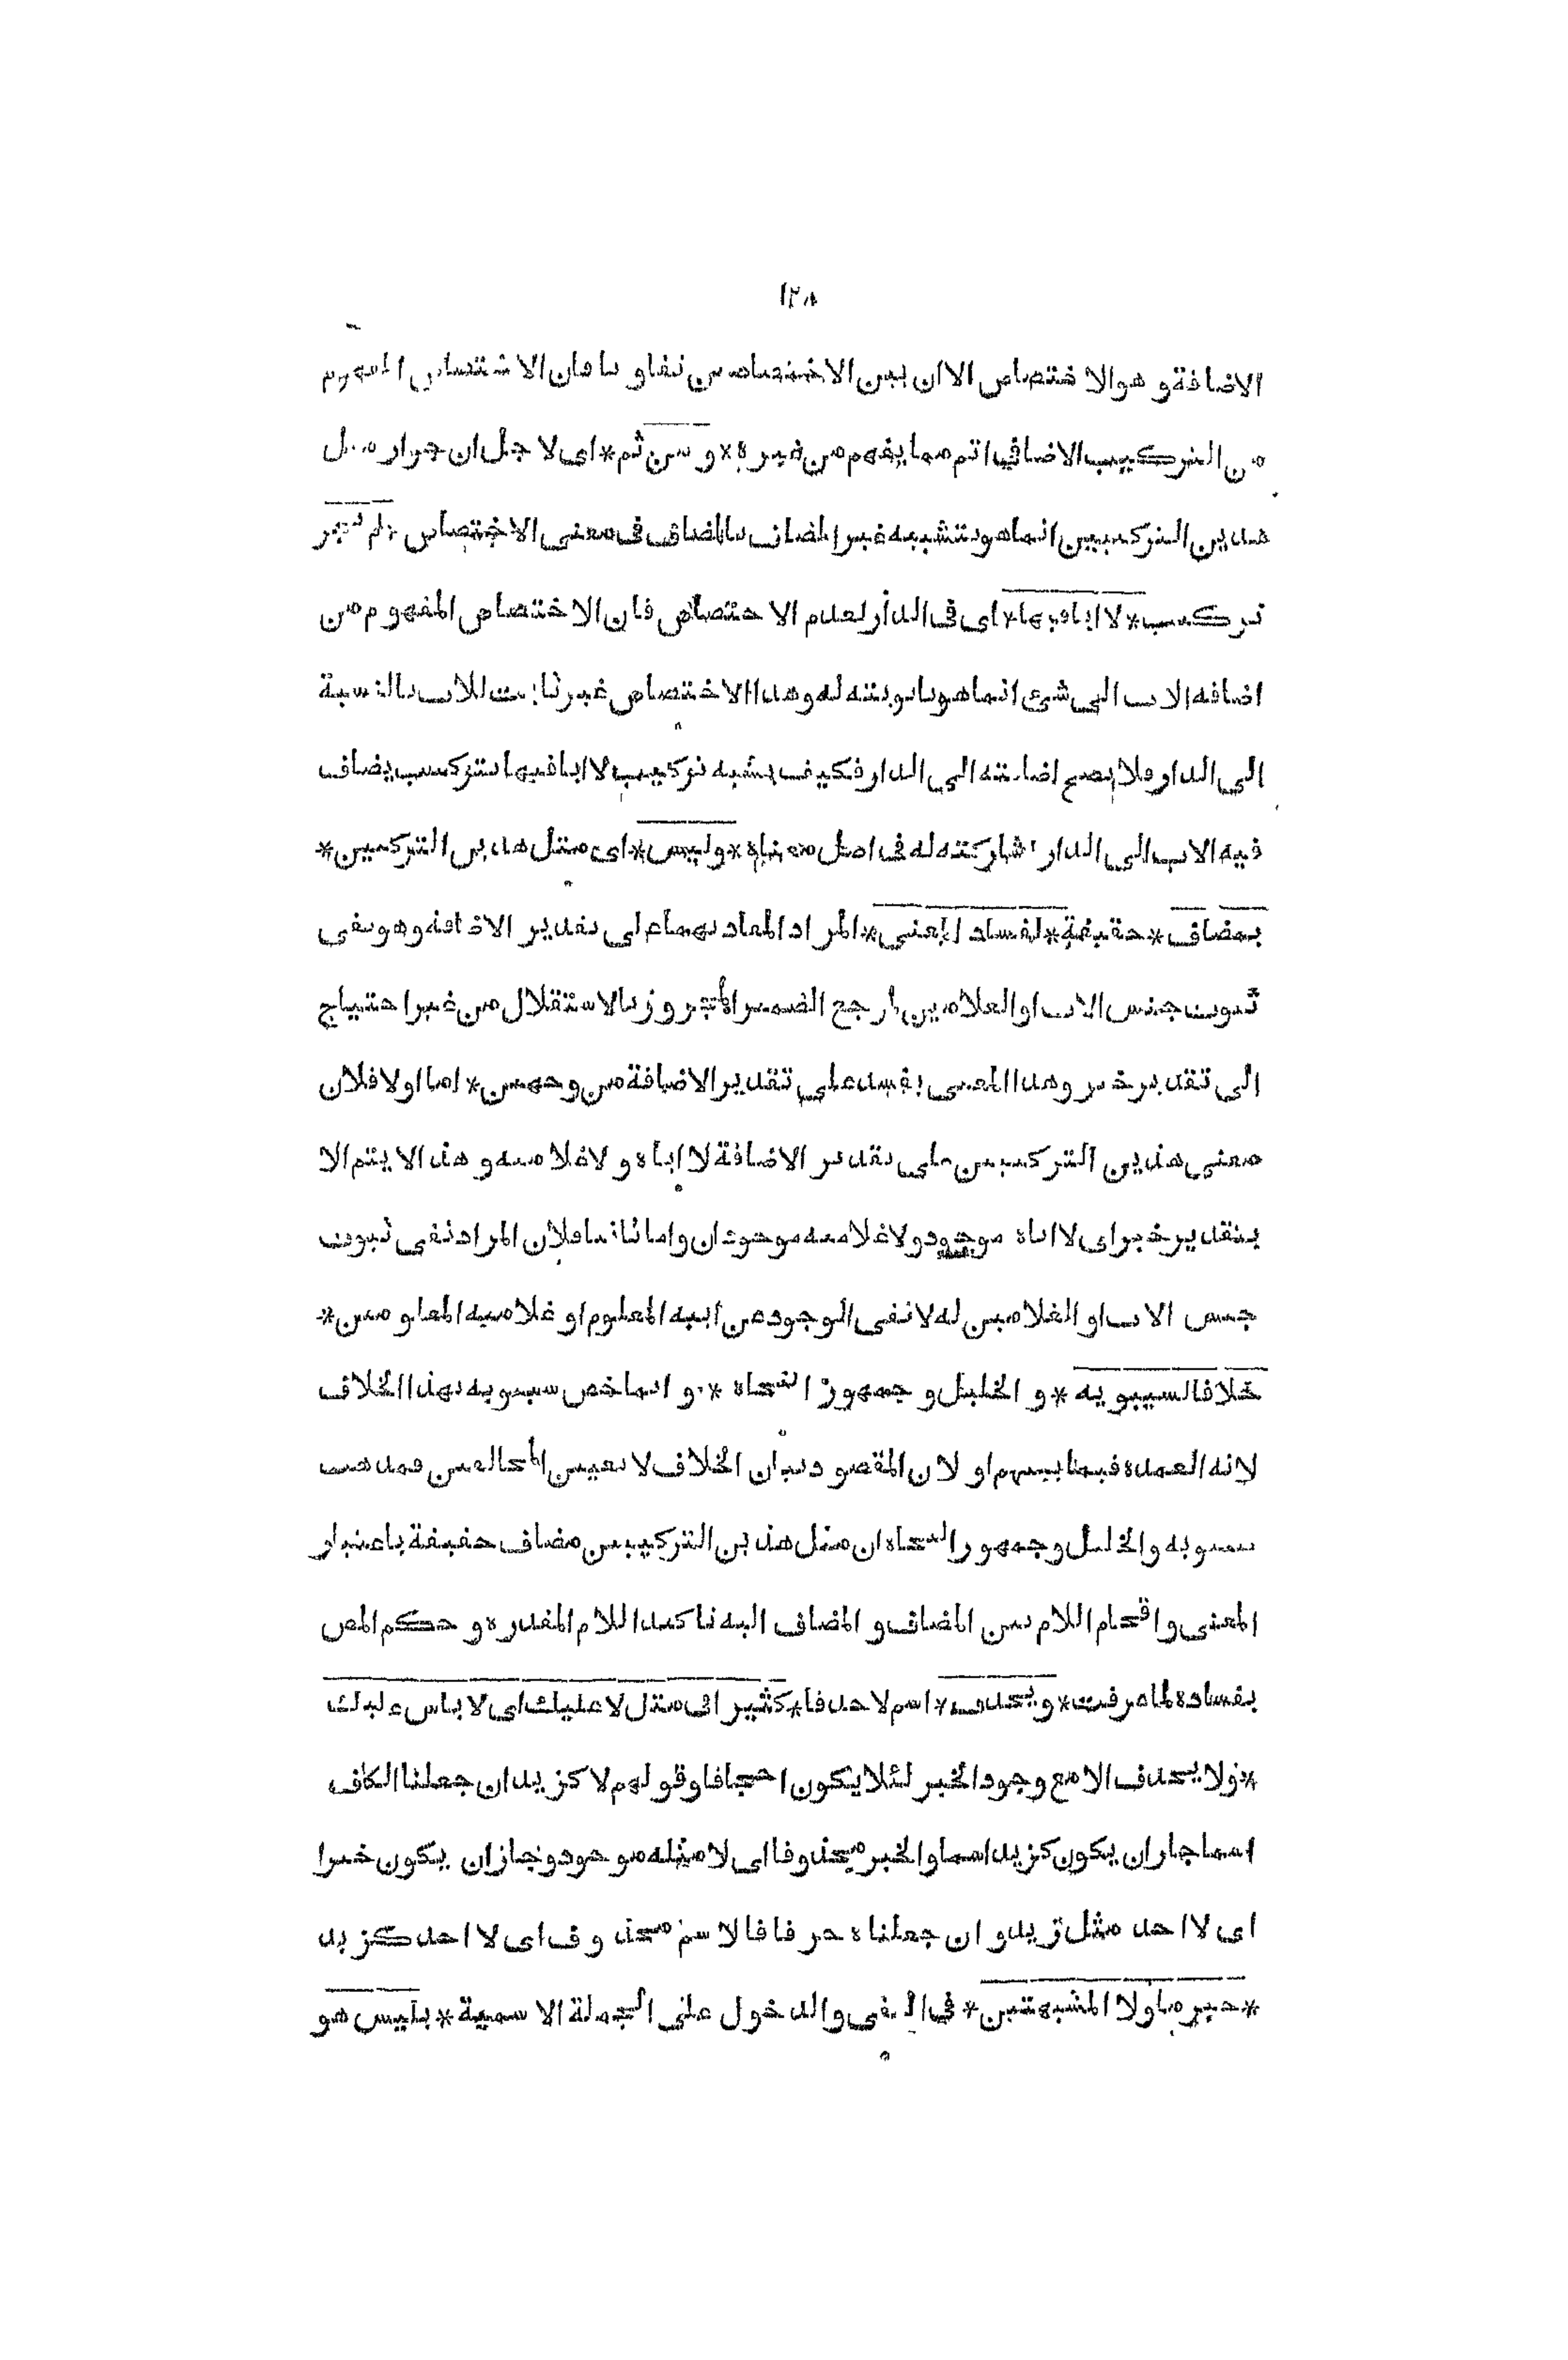 ١٢٨
الاضافة و هو الاختصاص الا ان بين الاختصاصين تفاوتا فان الاختصاص المفهوم
من التركيب الاضافى اتم مما يفهم من غيره * و من ثم * اى لاجل ان جواز مثل
هذين التركيبين انما هو بتشبيه غير المضاف بالمضاف فى معنى الاختصاص * لم تجز
تركيب * لا ابا فيها * اى فى الدار لعدم الاختصاص فان الاختصاص المفهوم من
اضافة الاب الى شئ انما هو بابوته له و هذا الاختصاص غير ثابت للاب بالنسبة
الى الدار فلا يصح اضافته الى الدار فكيف يشبه تركيب لا ابا فيها بتركيب يضاف
فيه الاب الى الدار لمشاركته له فى اصل معناه * وليس * اى مثل هذين التركيبين *
بمضاف * حقيقة * لفساد المعنى * المراد المفاد بهما على تقدير الاضافة و هو نفى
ثبوت جنس الاب او الغلامين لمرجع الضمير المجرور بالاستقلال من غير احتياج
الى تقدير خبر و هذا المعنى يفسد على تقدير الاضافة من وجهين * اما اولا فلان
معنى هذين التركيبين على تقدير الاضافة لا اباه و لا غلاميه و هذا لا يتم الا
بتقدير خبر اى لا اباه موجود و لا غلاميه موجودان و اما ثانيا فلان المراد نفى ثبوت
جنس الاب او الغلامين له لا نفى الوجود عن ابيه المعلوم او غلاميه المعلومين *
خلافا لسيبويه * و الخليل و جمهور النحاة * و انما خص سيبويه بهذا الخلاف
لانه العمدة فيما بينهم او لان المقصود بيان الخلاف لا تعيين المخالفين فمذهب
سيبويه و الخليل و جمهور النحاة ان مثل هذين التركيبين مضاف حقيقة باعتبار
المعنى و اقحام اللام بين المضاف و المضاف اليه تاكيد اللام المقدرة و حكم المص
بفساده لما عرفت * و يحذف * اسم لا حذفا * كثيرا فى مثل لا عليك اى لا باس عليك
* و لا يحذف الا مع وجود الخبر لئلا يكون احجافا و قولهم لا كزيد ان جعلنا الكاف
اسما جاز ان يكون كزيد اسما و الخبر محذوفا اى لا مثله موجود و جاز ان يكون خبرا
اى لا احد مثل زيد و ان جعلناه حرفا فالاسم محذوف اى لا احد كزيد
* خبر ما و لا المشبهتين * فى النفى و الدخول على الجملة الاسمية * بليس هو